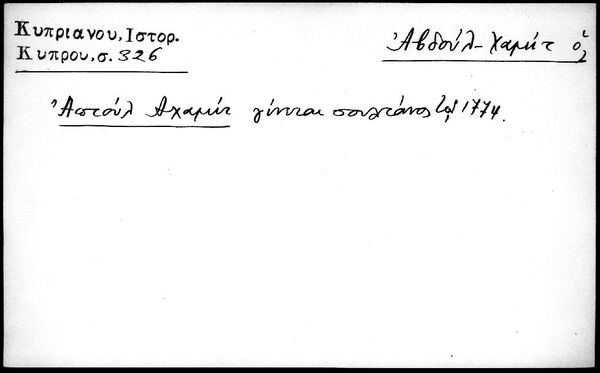 Κυπριανου, Ιστορ.
Κυπρου, σ. 326
Ἀβδούλ-Χαμίτ ὁ
Ἀπτούλ Αχαμίτ γίνεται σουλτάνος τῷ 1774.